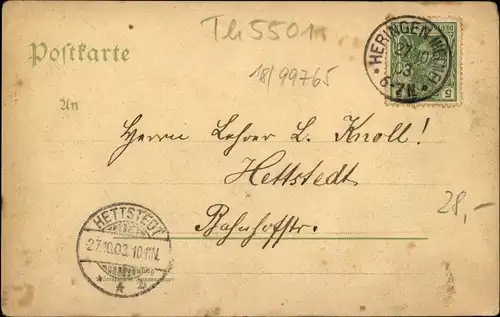 Th 5501
Postkarte
18/99765
HERINGEN
27.10.
03
6-7N
5
An
Herrn Lehrer L. Knoll!
Hettstedt
Bahnhofstr.
28,-
HETTSTEDT
27.10.03. 10-11V.